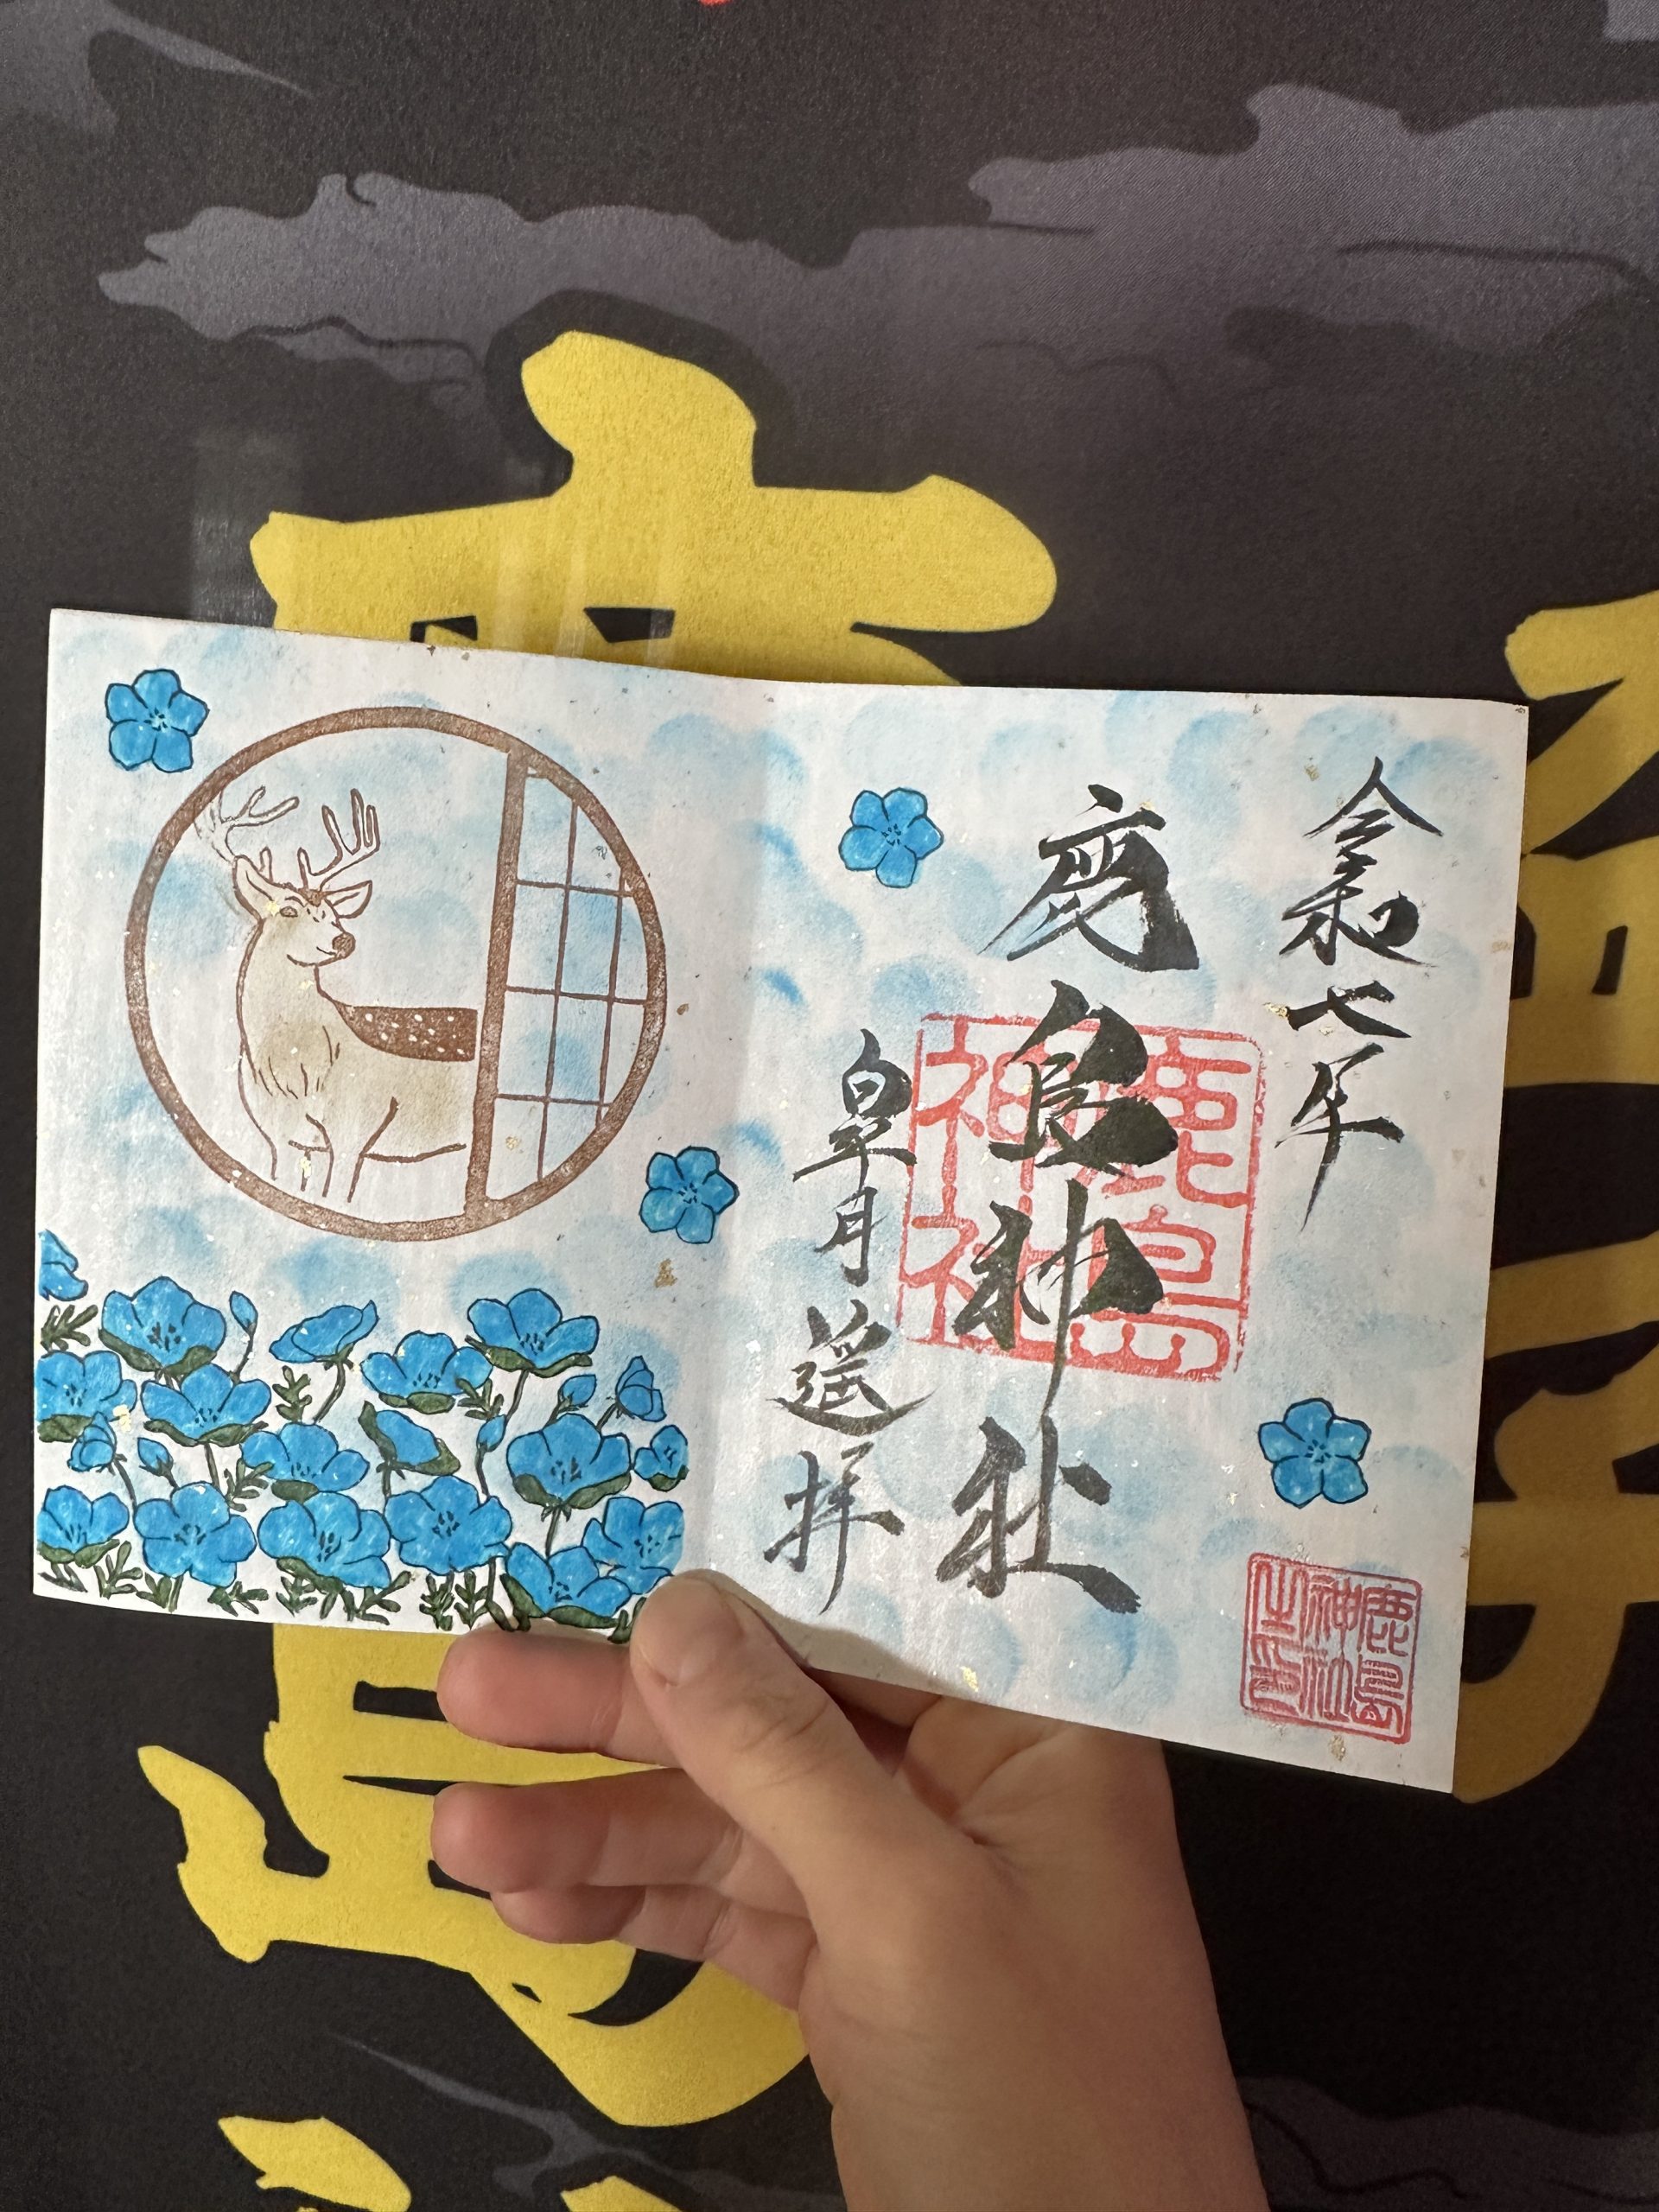 令和七年
鹿島神社
皐月遥拝
鹿島
神社
鹿島
神社
之印